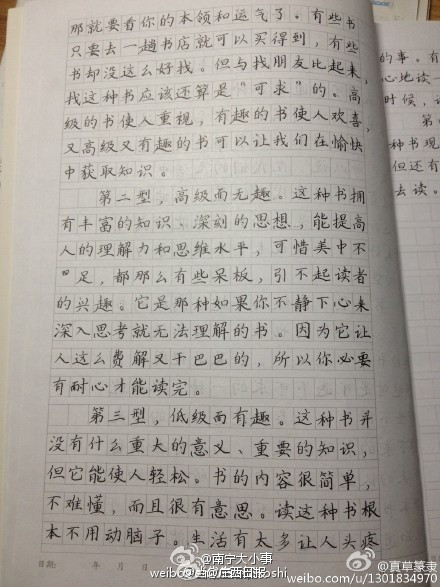 那就要看你的本领和运气了。有些书
只要去一趟书店就可以买得到，有些
书却没这么好找。但与找朋友比起来，
找这种书应该还算是“可求”的。高
级的书使人重视，有趣的书使人欢喜，
又高级又有趣的书可以让我们在愉快
中获取知识。
第二型，高级而无趣。这种书拥
有丰富的知识、深刻的思想，能提高
人的理解力和思维水平，可惜美中不
足，都那么有些呆板，引不起读者
的兴趣。它是那种如果你不静下心来
深入思考就无法理解的书。因为它让
人这么费解又干巴巴的，所以你必要
有耐心才能读完。
第三型，低级而有趣。这种书并
没有什么重大的意义、重要的知识，
但它能使人轻松。书的内容很简单，
不难懂，而且很有意思。读这种书根
本不用动脑子。生活有太多让人头疼
日期： 年 月 日
的事。有
心地读
时候，
第
种书现
但还有
去读。
@南宁大小事
@当代生活报
@真草篆隶
weibo.com/u/1301834970